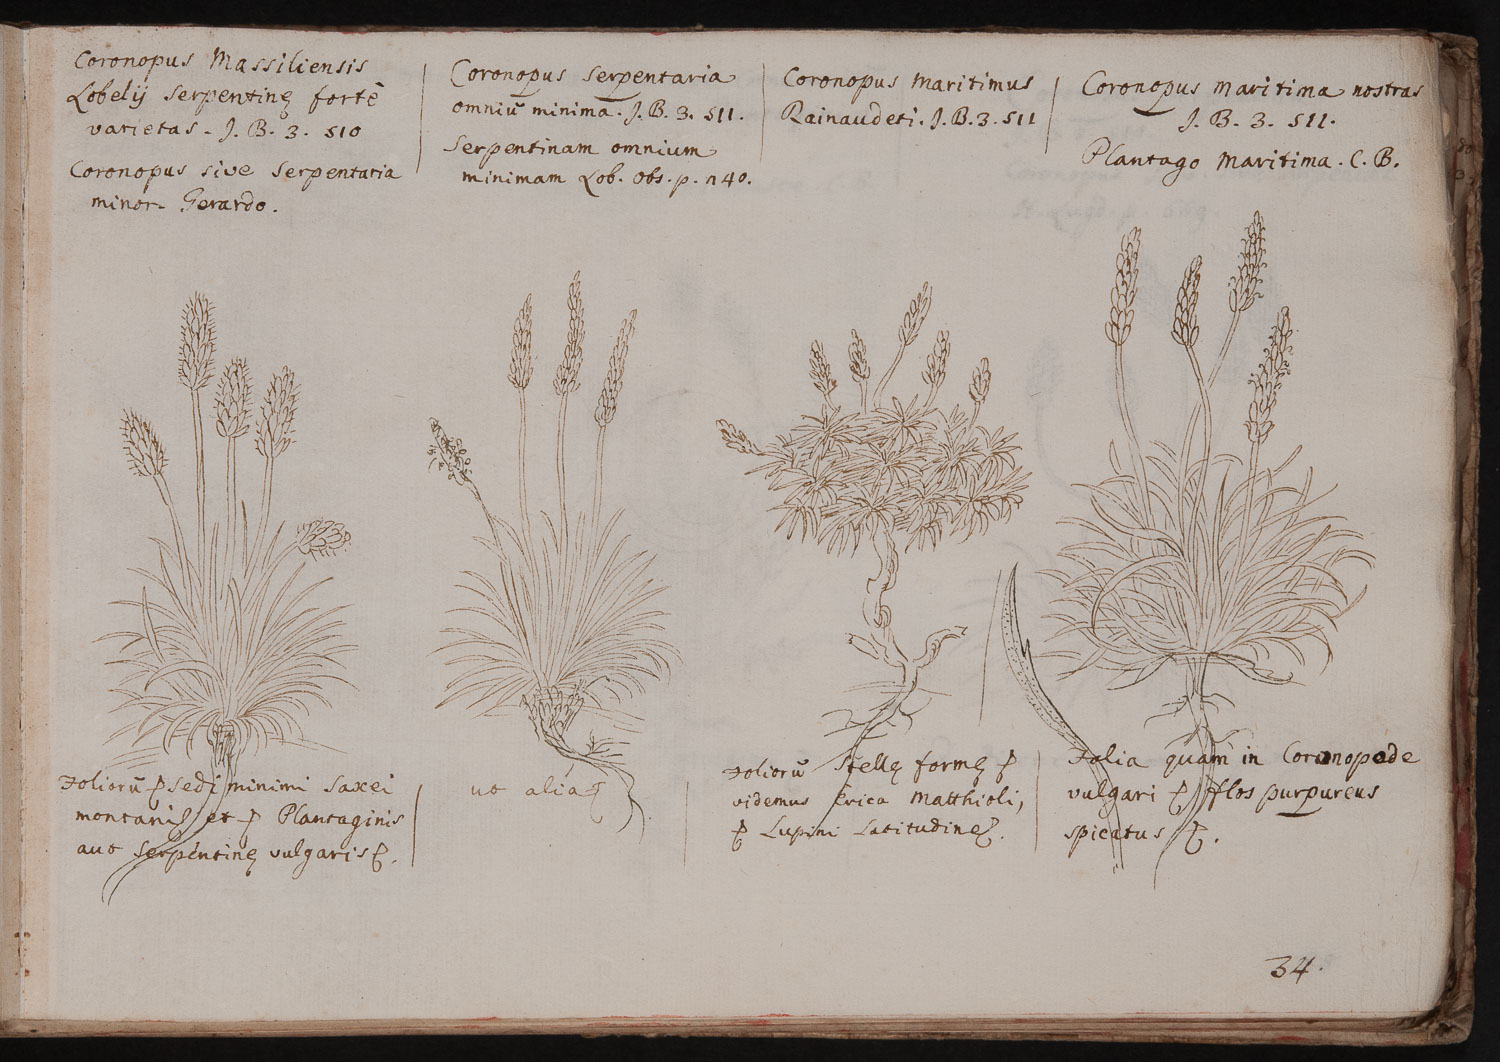 Coronopus Massiliensis
Lobelij serpentinę fortè
varietas. J. B. 3. 510
Coronopus sive Serpentaria
minor. Gerardo.
Coronopus Serpentaria
omniū minima. J. B. 3. 511.
Serpentinam omnium
minimam Lob. obs. p. 240.
Coronopus maritimus
Rainaudeti. J. B. 3. 511
Coronopus maritima nostras
J. B. 3. 511.
Plantago maritima. C. B.
Foliorū sedi minimi saxei
montani et Plantaginis
aut serpentinę vulgaris
ut alia
Foliorū stellę formę
videmus Erica Matthioli,
Lupini Latitudine
Folia quam in Coronopode
vulgari flos purpureus
spicatus
34.